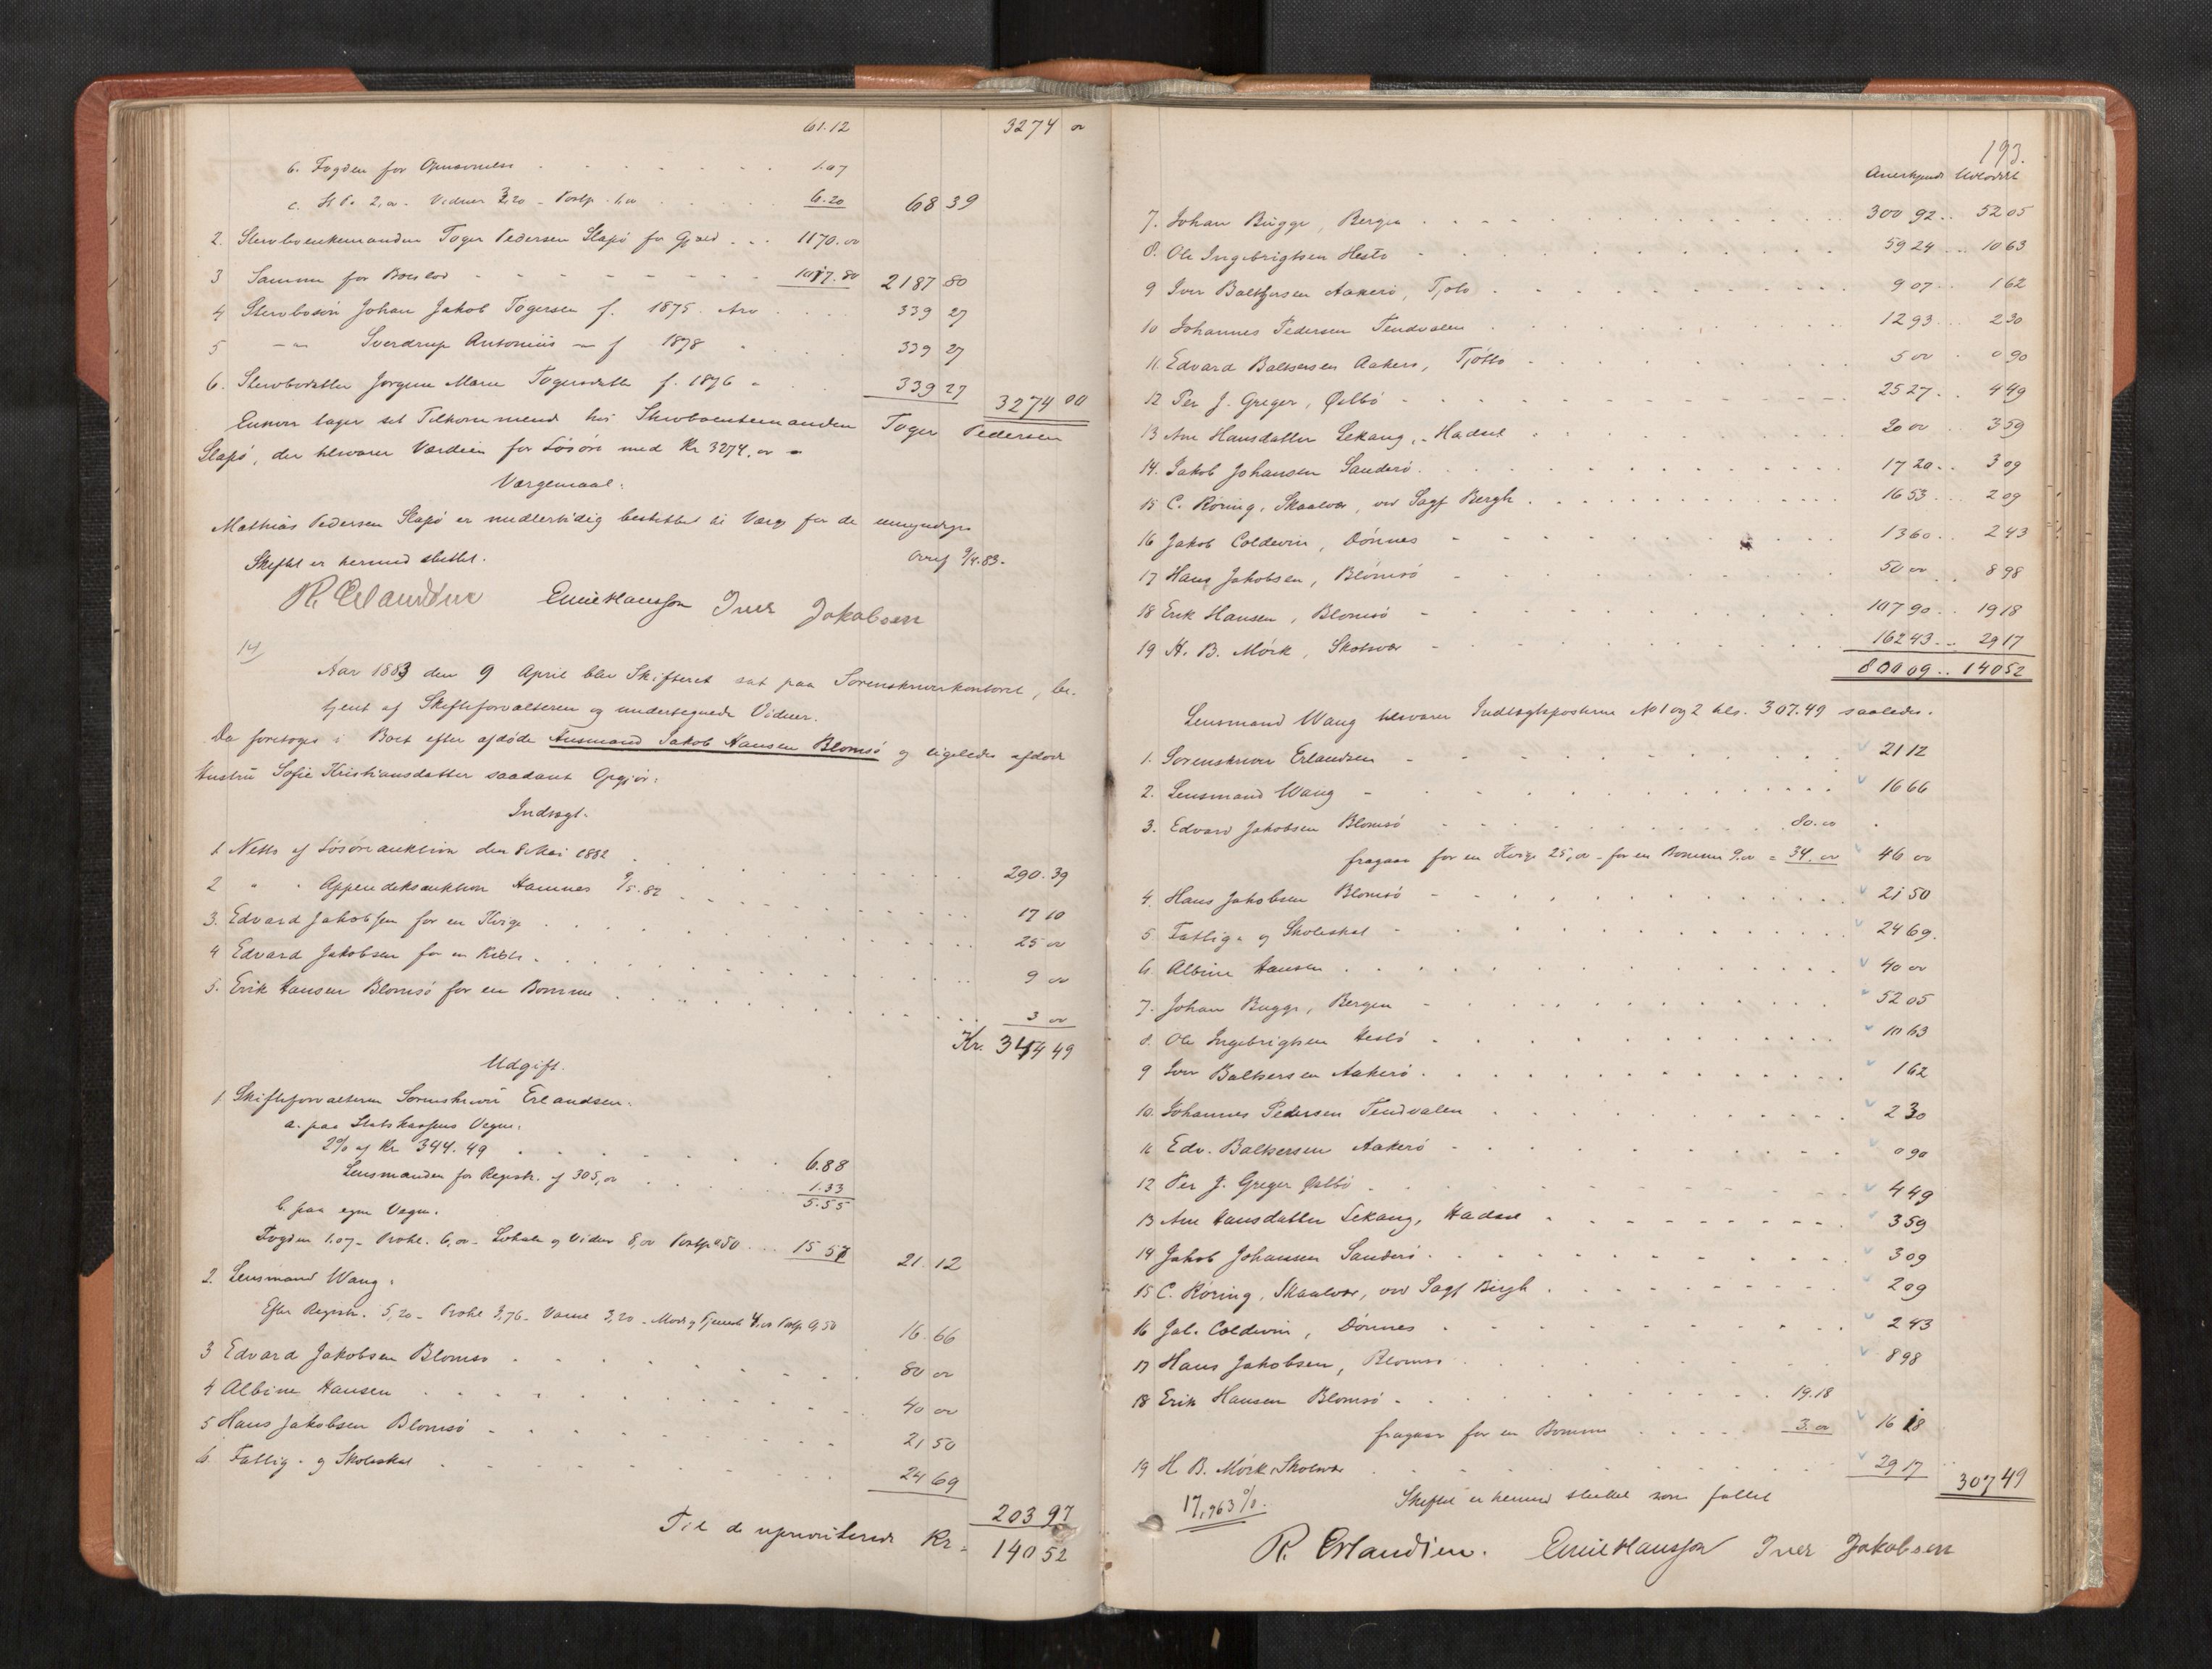 61.12 3274 00
b. Fogden for 1.07
c. St. P. 2,00 - Vidner 3,20 - Portp. 1,00 6.20 68 39
2. Stervboenkemanden Toger Pedersen Slapö for Gjæld 1170.00
3 Samme for Boeslod 1017.80 2187 80
4 Stervbosön Johan Jakob Togersen f. 1875. Arv 339 27
5 — " — Sverdrup Antonius — " f. 1878 " 339 27
6. Stervbodatter Jørgine Marie Togersdatter f. 1876 " 339 27 3274 00
Enhver tager sit Tilkommende hos Stervboenkemanden Toger Pedersen
Slapö, der tilsvarer Værdien for Lösöre med Kr 3274,00
Værgemaal:
Mathias Pedersen Slapö er midlertidig beskikket til Værge for de umyndige
Skiftet er hermed sluttet. 9/4.83.
R. Erlandsen Emil Hansson Iver Jakobsen
14)
Aar 1883 den 9 April blev Skifteret sat paa Sorenskriverkontoret, be-
tjent af Skifteforvalteren og undertegnede Vidner.
Da foretoges i Boet efter afdöde Husmand Jakob Hansen Blomsö og ligeledes afdöde
Hustru Sofie Kristiansdatter saadant Opgjör:
Indtægt.
1. Netto af Lösöreauktion den 8 Mai 1882 290.39
2 " " Appendeksauktion Hamnes 9/5.82 17 10
3. Edvard Jakobsen for en Kvige 25 00
4 Edvard Jakobsen for en 9 00
5. Erik Hansen Blomsö for en Bomme 3 00
Kr. 344 49
Udgift.
1. Skifteforvalteren Sorenskriver Erlandsen:
a. paa Statskassens Vegne:
2% af Kr 344.49 6.88
Lensmanden for Registr. af 305,00 1.33
5.55
b. paa egne Vegne.
Fogden 1.07 - Prokl. 6,00 - Lokale og Vidner 8,00 Portp 0,50 15 57 21.12
2. Lensmand Wang:
Efter Registr. 5,20 - Prokl 3,76 - Varsel 3,20 - Mod og 4,00 Portp 0,50 16.66
3 Edvard Jakobsen Blomsö 80 00
4 Albine Hansen 40 00
5 Hans Jakobsen Blomsö 21 50
6. Fattig- og Skoleskat 24 69 203 97
Til de uprioriterede Kr. 140 52
193.
Anerkjendt Udloddet
7. Johan Bügge, Bergen 300 92 52 05
8. Ole Ingebrigtsen Hestö 59 24 10 63
9 Iver Baltzersen Aakerö, Tjötö 9 07 1 62
10 Johannes Pedersen Tendvalen 12 93 2 30
11. Edvard Baltsersen Aakerö, Tjöttö 5 00 0 90
12 Per J. Greger, Östbö 25 27 4 49
13 Ane Hansdatter Sekang, Hadsel 20 00 3 59
14. Jakob Johansen Sanderö 17 20 3 09
15 C. Röring, Skaalvær, ved Sagf Bergh 16 53 2 09
16 Jakob Coldevin, Dönnes 13 60 2 43
17 Hans Jakobsen, Blomsö 50 00 8 98
18 Erik Hansen, Blomsö 107 90 19 18
19 H. B. Mörk, Skotsvær 162 43 29 17
800 09 140 52
Lensmand Wang tilsvarer Indtægtsposterne No 1 og 2 tils. 307.49 saaledes.
1. Sorenskriver Erlandsen 21 12
2. Lensmand Wang 16 66
3. Edvard Jakobsen Blomsö 80.00
fragaar for en Kvige 25,00 - for en Bomme 9.00 = 34.00 46 00
4. Hans Jakobsen Blomsö 21 50
5 Fattig- og Skoleskat 24 69.
6. Albine Hansen 40 00
7. Johan Bugge, Bergen 52 05
8. Ole Ingebrigtsen Hestö 10 63
9 Iver Baltsersen Aakerö 1 62
10. Johannes Pedersen Tendvalen 2 30
11 Edv. Baltsersen Aakerö 0 90
12 Per J. Greger Östbö 4 49
13 Ane Hansdatter Sekang, Hadsel 3 59
14 Jakob Johansen Sanderö 3 09
15 C. Röring, Skaalvær, ved Sagf Bergh 2 09
16 Jak. Coldevin, Dönnes 2 43
17 Hans Jakobsen, Blomsö 8 98
18 Erik Hansen Blomsö 19.18
fragaar for en Bomme 3.00 16 18
19 H. B. Mörk, Skotsvær 29 17 307 49
17,963%. Skiftet er hermed sluttet som fallit
R. Erlandsen. Emil Hansson Iver Jakobsen